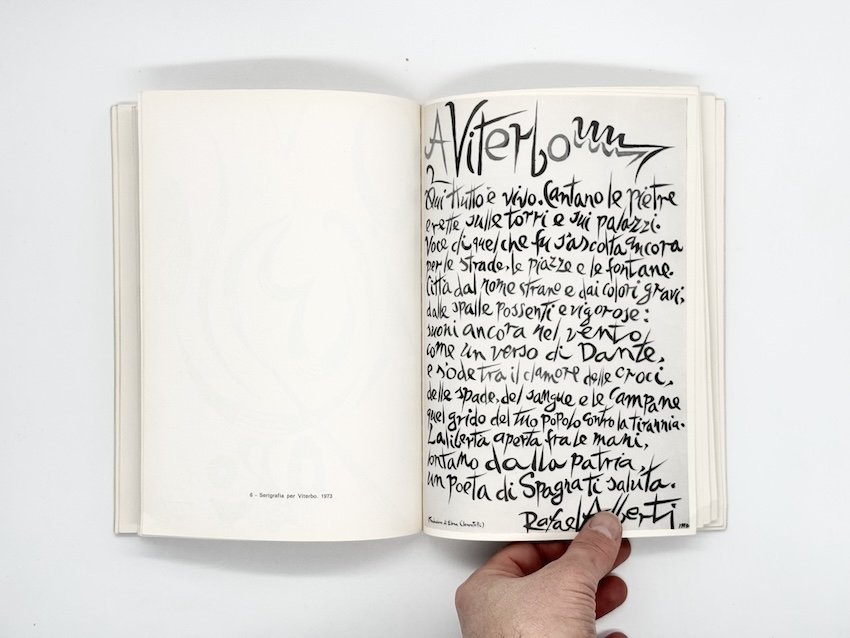 6 - Serigrafia per Viterbo. 1973
A Viterbo
2
Qui tutto è vivo. Cantano le pietre
erette sulle torri e sui palazzi.
Voce di quel che fu s'ascolta ancora
per le strade, le piazze e le fontane.
Città dal nome strano e dai colori gravi,
dalle spalle possenti e vigorose:
suoni ancora nel vento
come un verso di Dante,
e s'ode tra il clamore delle croci,
delle spade, del sangue e le campane
quel grido del tuo popolo contro la tirannia.
La libertà aperta fra le mani,
lontano dalla patria,
un poeta di Spagna ti saluta.
Rafael Alberti